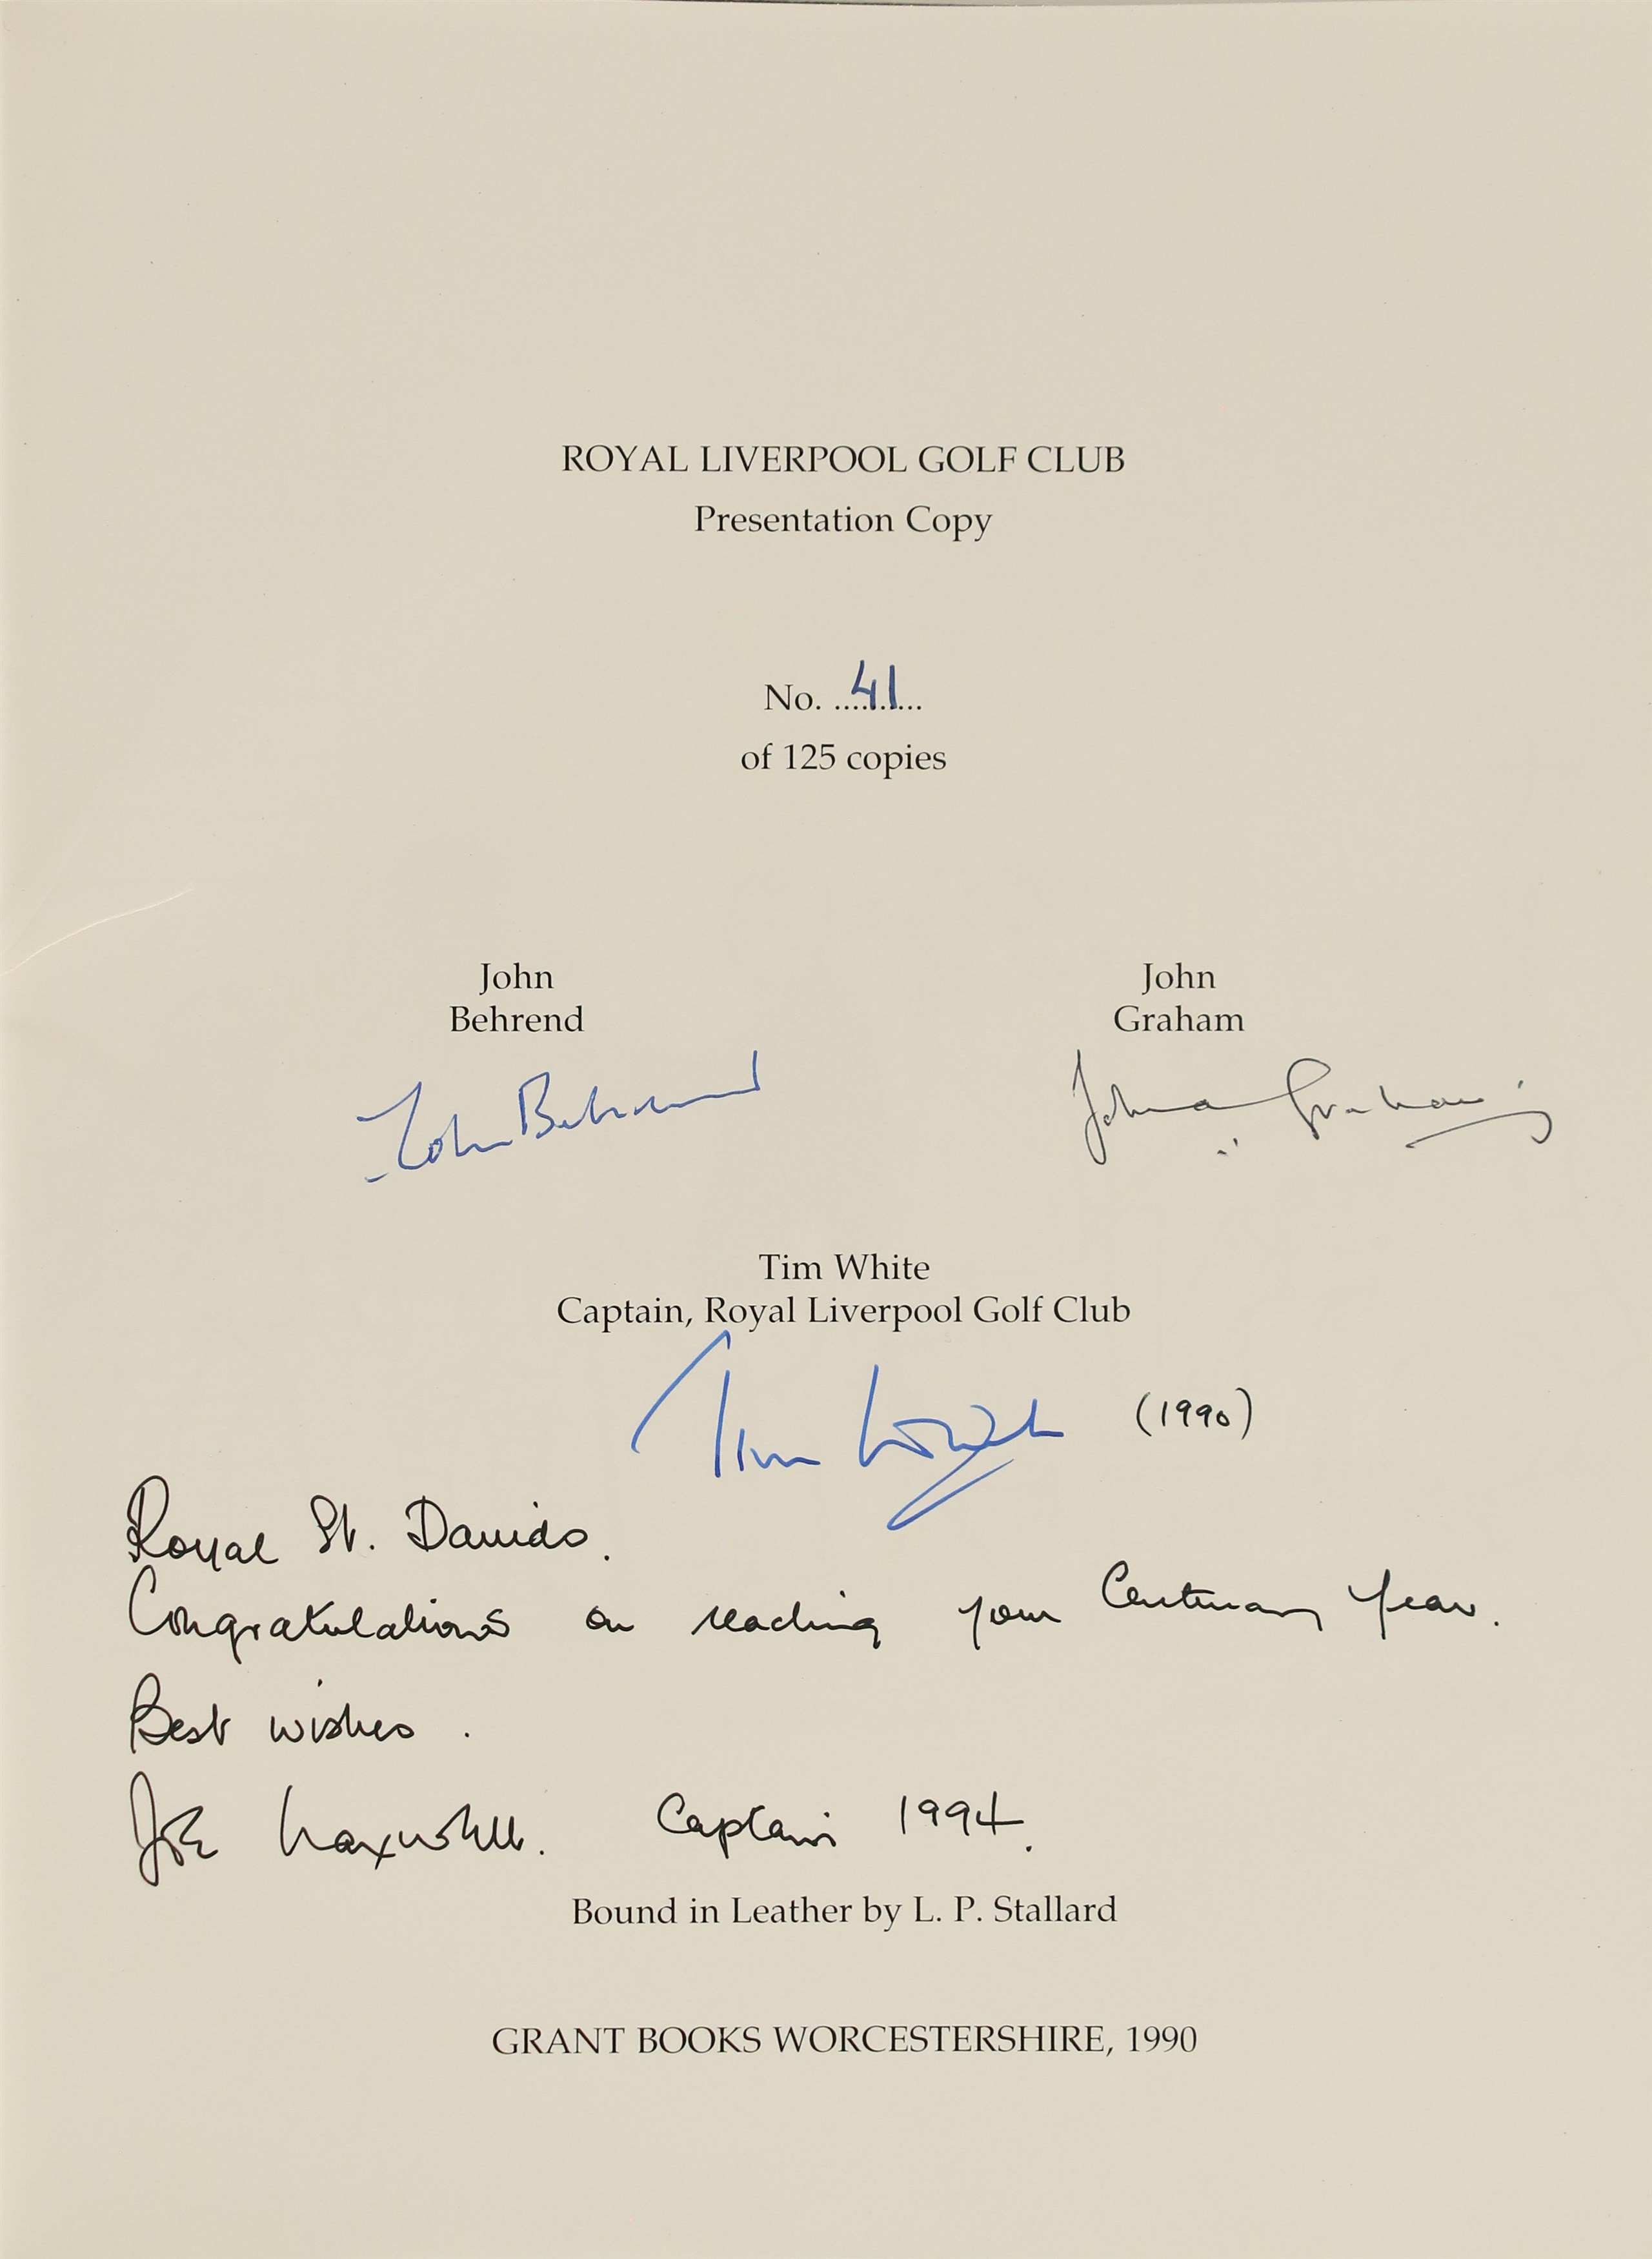 ROYAL LIVERPOOL GOLF CLUB
Presentation Copy
No. ....41....
of 125 copies
John
Behrend
John
Graham
John Behrend
John Graham
Tim White
Captain, Royal Liverpool Golf Club
Tim White (1990)
Royal St. Davids.
Congratulations on reaching your Centenary Year.
Best wishes.
Captain 1994.
Bound in Leather by L. P. Stallard
GRANT BOOKS WORCESTERSHIRE, 1990